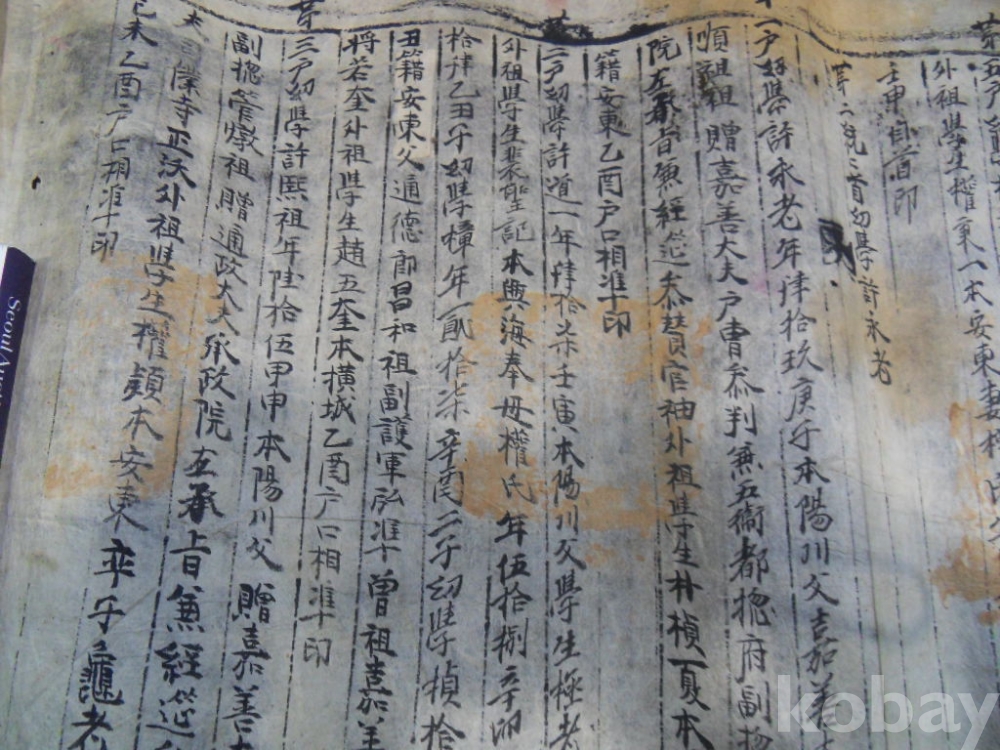 五戶幼學
外祖學生權東一本安東妻權氏年
壬申自首印
第二統統首幼學許永老
第一戶幼學許永老年肆拾玖庚子本陽川父嘉善大
順祖贈嘉善大夫戶曹參判兼五衛都摠府副摠
院左承旨兼經筵參贊官袖外祖學生朴楨夏本
籍安東乙酉戶口相准印
二戶幼學許道一年肆拾柒壬寅本陽川父學生極老
外祖學生裴聖記本興海奉母權氏年伍拾捌辛卯
拾肆乙丑子幼學樟年貳拾柒辛酉二子幼學楨拾
丑籍安東父通德郎昌和祖副護軍弘準曾祖嘉善
將若奎外祖學生趙五奎本橫城乙酉戶口相準印
第三戶幼學許熙祖年陸拾伍甲申本陽川父贈嘉善
副摠管燉祖贈通政大夫承政院左承旨兼經筵
夫 僕寺正沃外祖學生權顥本安東率子龜老
己未乙酉戶口相准印
Seoul Au
kobay